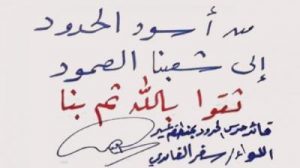 من أسود الحدود
إلى شعبنا الصمود
ثقوا بالله ثم بنا
قائد حرس الحدود بمنطقة عسير
اللواء / سفر الغامدي